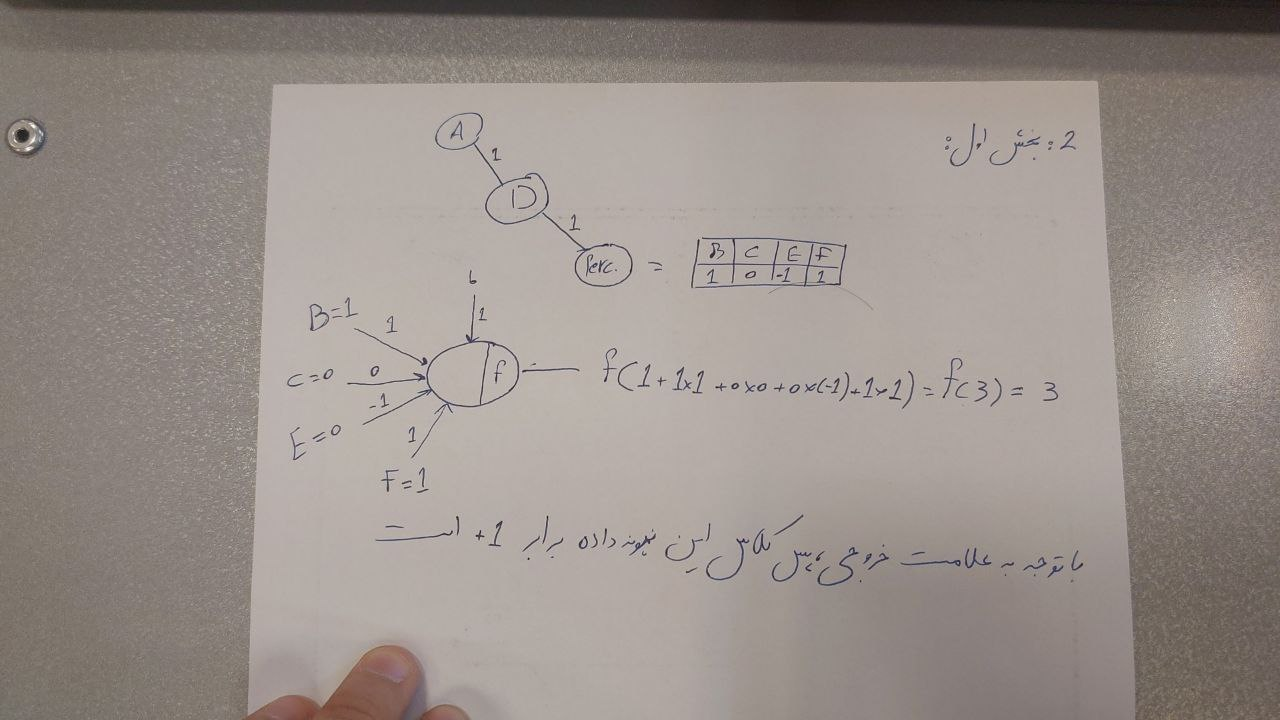 2: بخش اول:
A
1
D
1
Perc. =
B C E F
1 0 -1 1
b
1
B=1
1
C=0
0
E=0
-1
F=1
1
f
f(1+1×1+0×0+0×(-1)+1×1)=f(3)=3
با توجه به علامت خروجی، پس کلاس این نمونه داده برابر +1 است